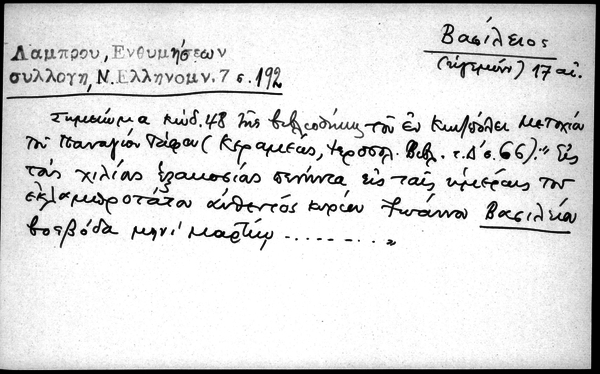 Βασίλειος
(ἡγεμών) 17 αἰ.
Λάμπρου, Ενθυμήσεων
συλλογη, Ν. Ελληνομν. 7 σ. 192
Σημείωμα κώδ. 48 τῆς βιβλιοθήκης τοῦ ἐν Κων/πόλει Μετοχίου
τοῦ Παναγίου Τάφου (Κεραμέως, Ἱεροσολ. Βιβλ. τ. Δ' σ. 66). " Εἰς
τὰς χιλίας ἑξακοσίας πενήντα εἰς ταῖς ἡμέραις τοῦ
ἐκλαμπροτάτου αὐθεντός κυρίου Ἰωάννου Βασιλείου
βοεβόδα μηνί μαρτίῳ . . . . . . . . "